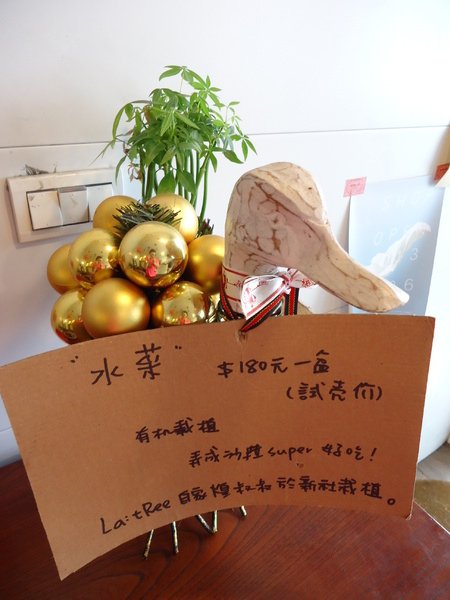 "水菜" $180元一盒
(試壳价)
有机栽植
弄成沙拉super好吃!
La:tRee 自家煌叔叔於新社栽植。
SHOP
OP